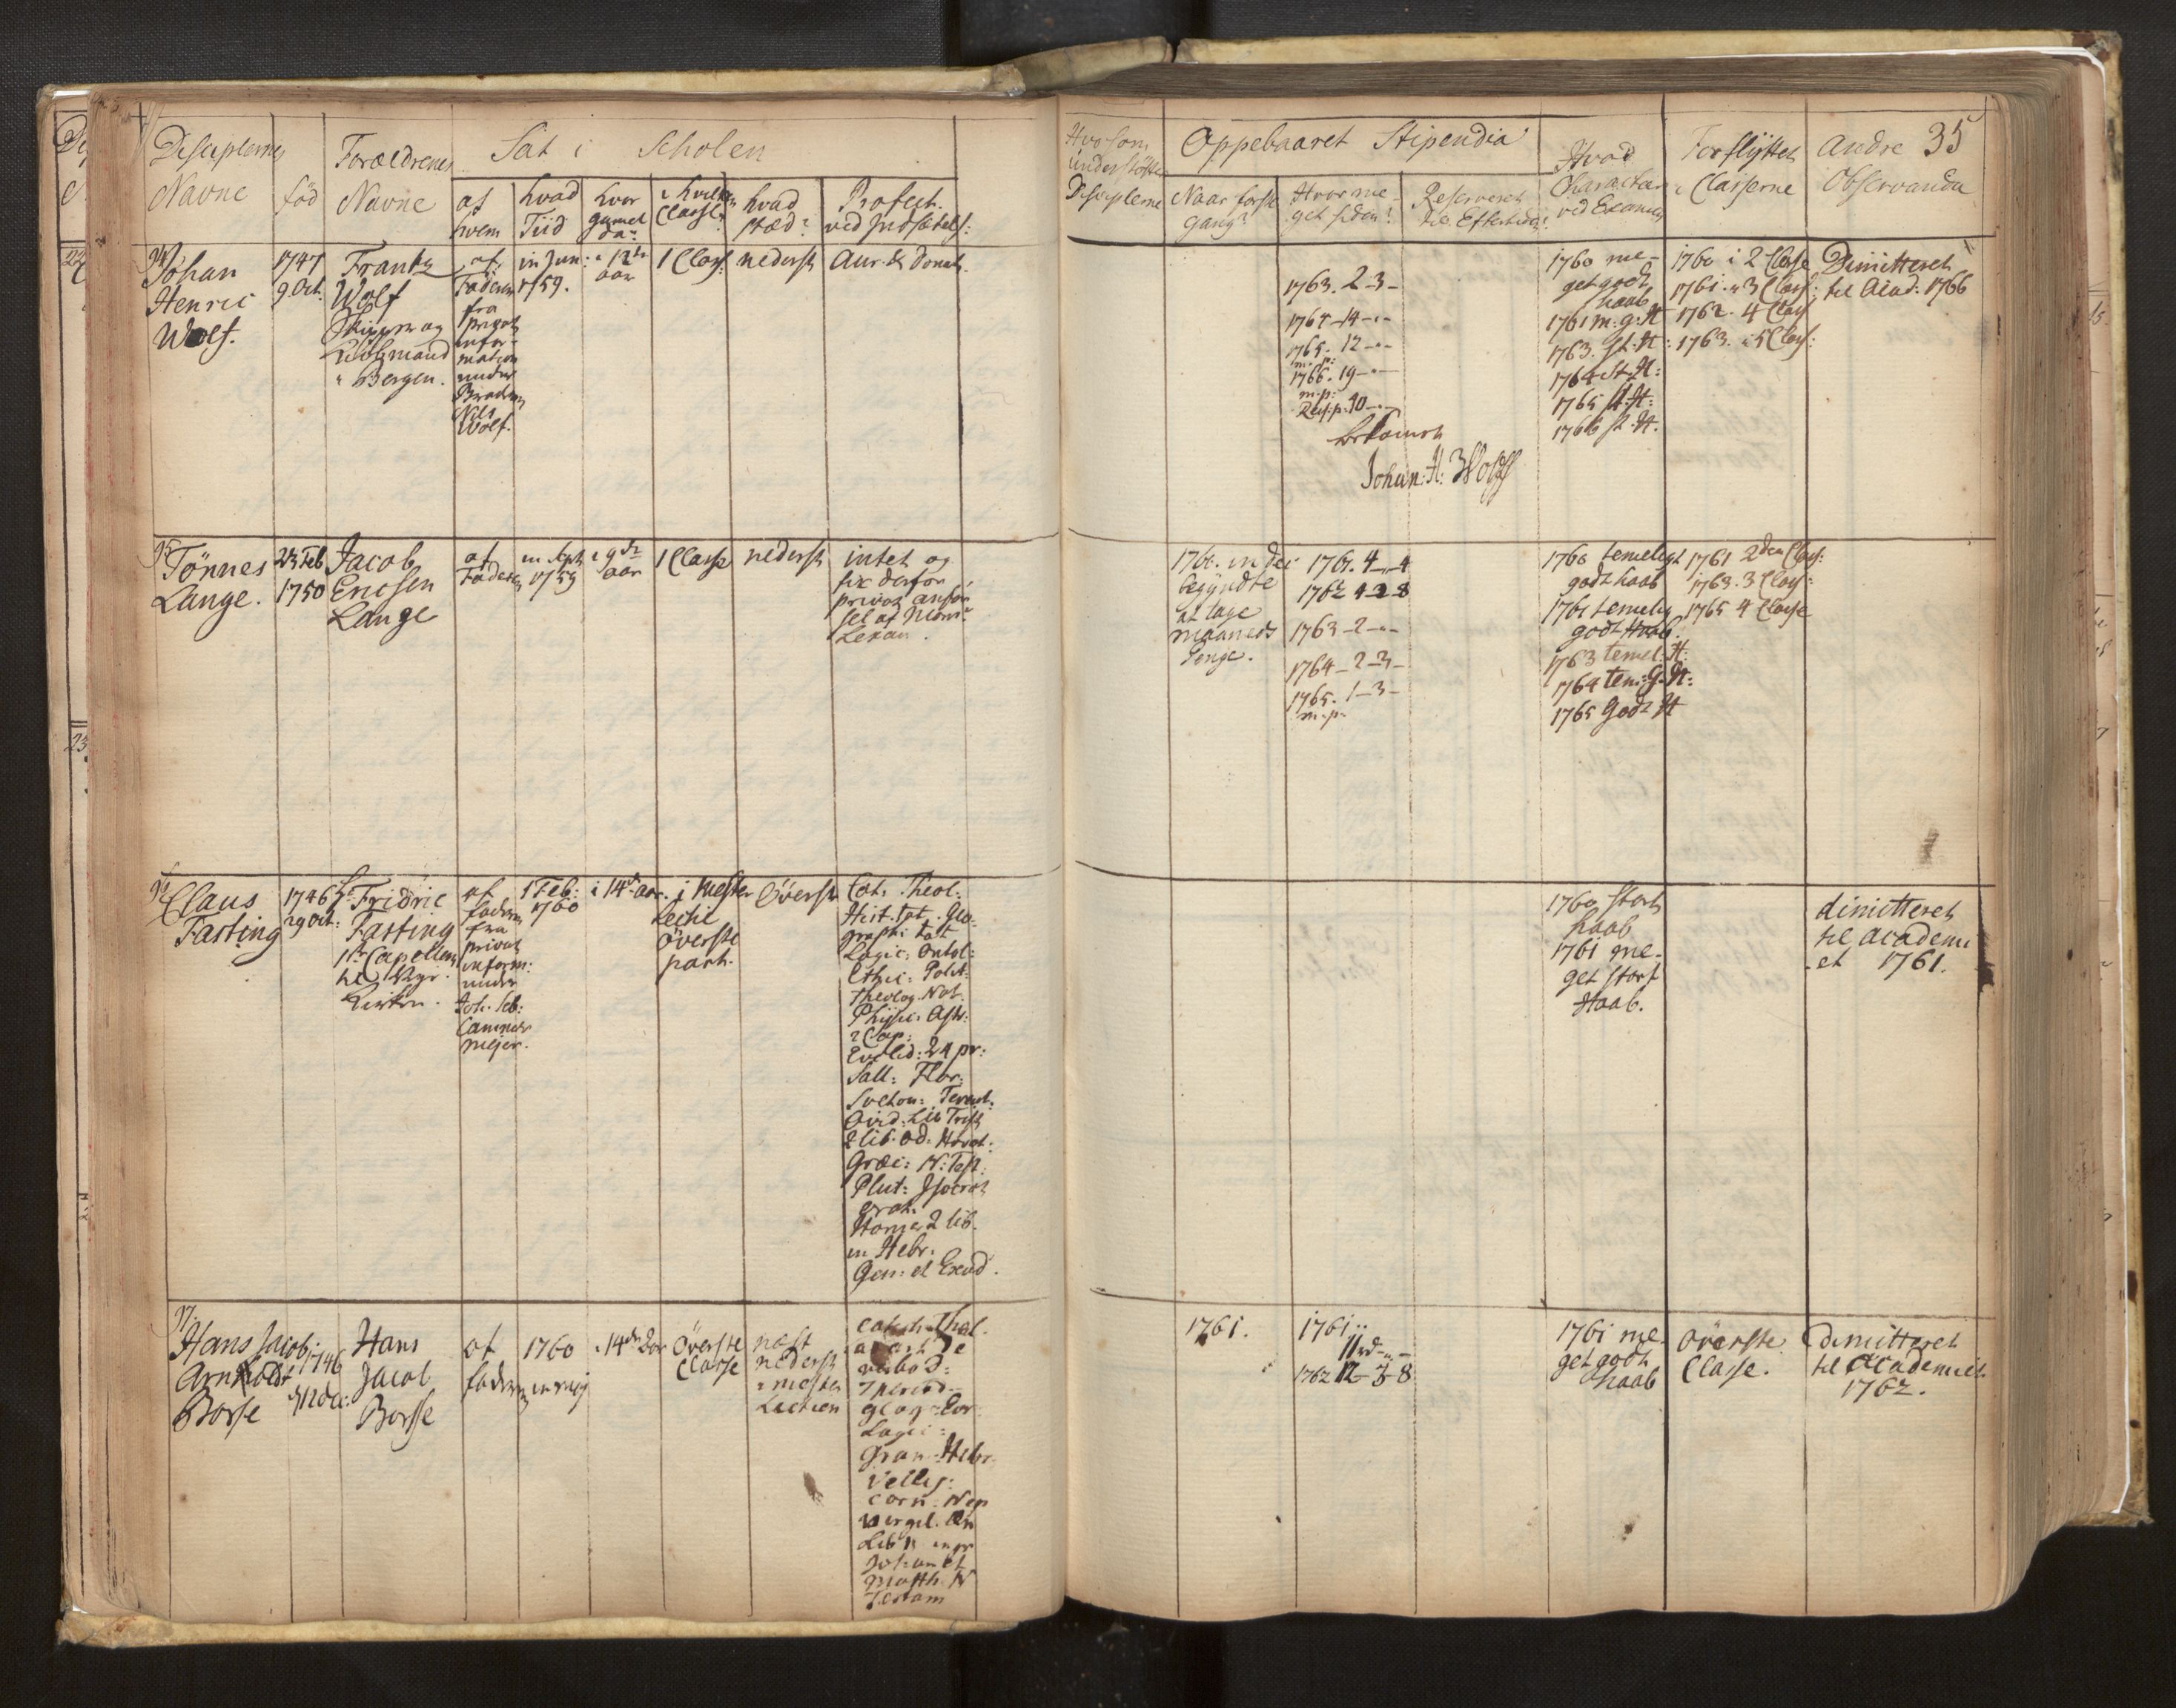 Disciplernes
Navne
fød
Forældrenes
Navne
Sat i Scholen
af
hvem
hvad
Tiid
hvor
gammel
da?
i hvilken
Classe?
hvad
stæd?
Profect.
ved Indsættels:
Hvo som
understøtter
Disciplerne
Oppebaaret Stipendia
Naar første
gang?
Hvor me-
get siden?
Reserveret
til Eftertiden?
Hvad
Character
ved Examen
Forflÿttet
i Classerne
Andre
Observanda
35
94
Johan
Henric
Wolf.
1747
9 Oct:
Frantz
Wolf
Skipper og
Kiøbmand
i Bergen.
af
Faderen
fra
privat
infor-
mation
under
Broderen
Nils
Wolf.
in Jun:
1759.
i 12te
aar
1 Class:
nederst
Aur. & Donat.
1763. 2-3-
1764-14-"-
1765. 12-"-
m.p:
1766. 19-"-
m.p:
Res.p. 30-"-
bekomet
Johan: H: Wolff
1760 me-
get godt
haab
1761 m: g: H
1763. St: H:
1764 St. H:
1765 St. H:
1766 st. H.
1760 i 2 Classe
1761. i 3 Class:
1762. 4 Class
1763. i 5 Class:
Dimitteret
til Acad: 1766
95
Tönnes
Lange.
23 Feb
1750
Jacob
Ericsen
Lange
af
Faderen
in Sept
1759
i 9de
aar
1 Classe
nederst
intet og
fik derfor
privat anfør
sel af Mons:
Lexau.
1760. in Dec
begÿndte
at tage
maaneds
Penge.
1761. 4-"-4
1762 4 2 8
1763-2-"-
1764-2-3-
1765. 1-3-
m.p.
1760 temeligt
godt haab
1761 temelig
godt Haab.
1763 temel: H:
1764 tem: G: H:
1765 Godt H
1761 2den Class:
1763. 3 Class:
1765 4 Classe
96
Claus
Fasting
1746
29 Oct:
Hr. Fridric
Fasting
1ste Capellan
til Nÿe
Kirken.
af
faderen
fra
privat
inform:
under
Joh. Seb:
Cammer
mejer.
1 Feb:
1760
i 14de aar.
i Mester
Lectie
överste
part.
Överst
Cat. Theol.
Hist. tot. Geo-
graph: tot
Logic: Ontol:
Ethic: Polit:
Theolog. Nat.
Phÿsic. Astr:
2 Cap:
Euclid: 24 pr:
Sall: Flor:
Sveton: Terent:
Ovid: Lib Trist
2 lib. Od: Horat:
Græc: N: Test:
Plut: Isocrat
orat.
Homer 2 lib.
in Hebr:
Gen: et Exod.
1760 stort
haab
1761 me-
get stort
Haab.
dimitteret
til academi
et 1761.
97.
Hans Jacob
Arnholdt
Borse
1746
Hans
Jacob
Borse
af
faderen
1760
in maj
i 14de Aar
överste
Classe
næst
nederst
i mester
Lectien
Logic:
Gram: Hebr
Vellej:
Corn: Nep
Virgil. Æn
Lib
Joh: an et
Matth: N
Testam
1761.
1761:.
11 rd-"-
1762 12-3-8
1761 me-
get godt
haab
överste
Classe.
dimitteret
til academiet
1762.